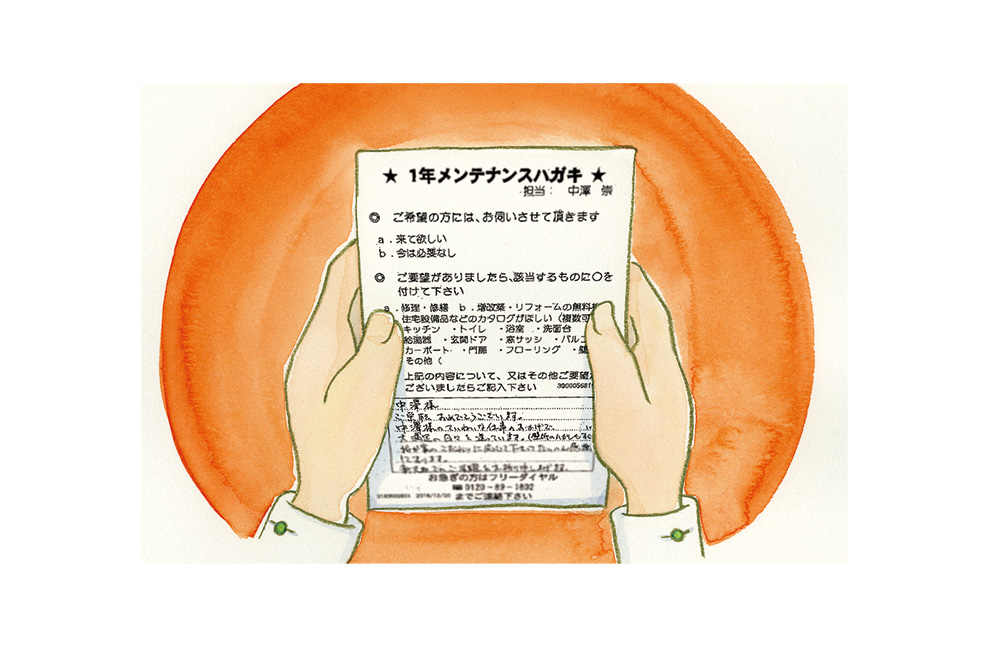 ★ 1年メンテナンスハガキ ★
担当： 中澤 崇
◎ ご希望の方には、お伺いさせて頂きます
a．来て欲しい
b．今は必要なし
◎ ご要望がありましたら、該当するものに〇を
付けて下さい
a．修理・修繕 b．増改築・リフォームの無料
住宅設備品などのカタログがほしい（複数可
キッチン ・トイレ ・浴室 ・洗面台
給湯器 ・玄関ドア ・窓サッシ ・バルコ
カーポート ・門扉 ・フローリング ・
その他（
上記の内容について、又はその他ご要望が
ございましたらご記入下さい
中澤様
ご昇転 おめでとうございます。
中澤様のていねいな仕事のおかげで、
大満足の日々を送っています。
我が家のこだわりに
しております。
新天地でのご活躍をお祈り申し上げます。
お急ぎの方はフリーダイヤル
0120－89－1602
までご連絡下さい